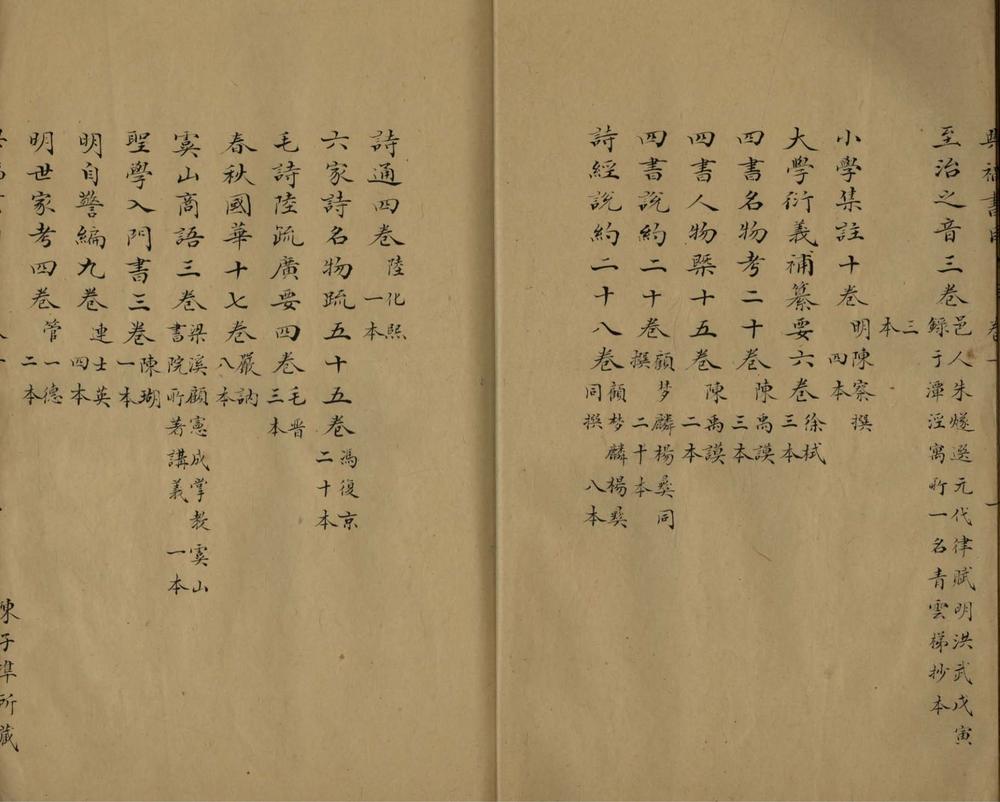 至治之音三卷 邑人朱燧選元代律賦明洪武戊寅
録于潭涇寓所一名青雲梯抄本
三本
小學集註十卷 明陳察撰
四本
大學衍義補纂要六卷 徐栻
三本
四書名物考二十卷 陳禹謨
三本
四書人物槩十五卷 陳禹謨
二本
四書說約二十卷 顧梦麟楊彝同
撰 二十本
詩經說約二十八卷 顧梦麟楊彝
同撰 八本
詩通四卷 陸化熙
一本
六家詩名物疏五十五卷 馮復京
二十本
毛詩陸疏廣要四卷 毛晋
三本
春秋國華十七卷 嚴訥
八本
虞山商語三卷 梁溪顧憲成掌教虞山
書院所著講義 一本
聖學入門書三卷 陳瑚
一本
明自警編九卷 連士英
四本
明世家考四卷 管一德
二本
陳子準所藏